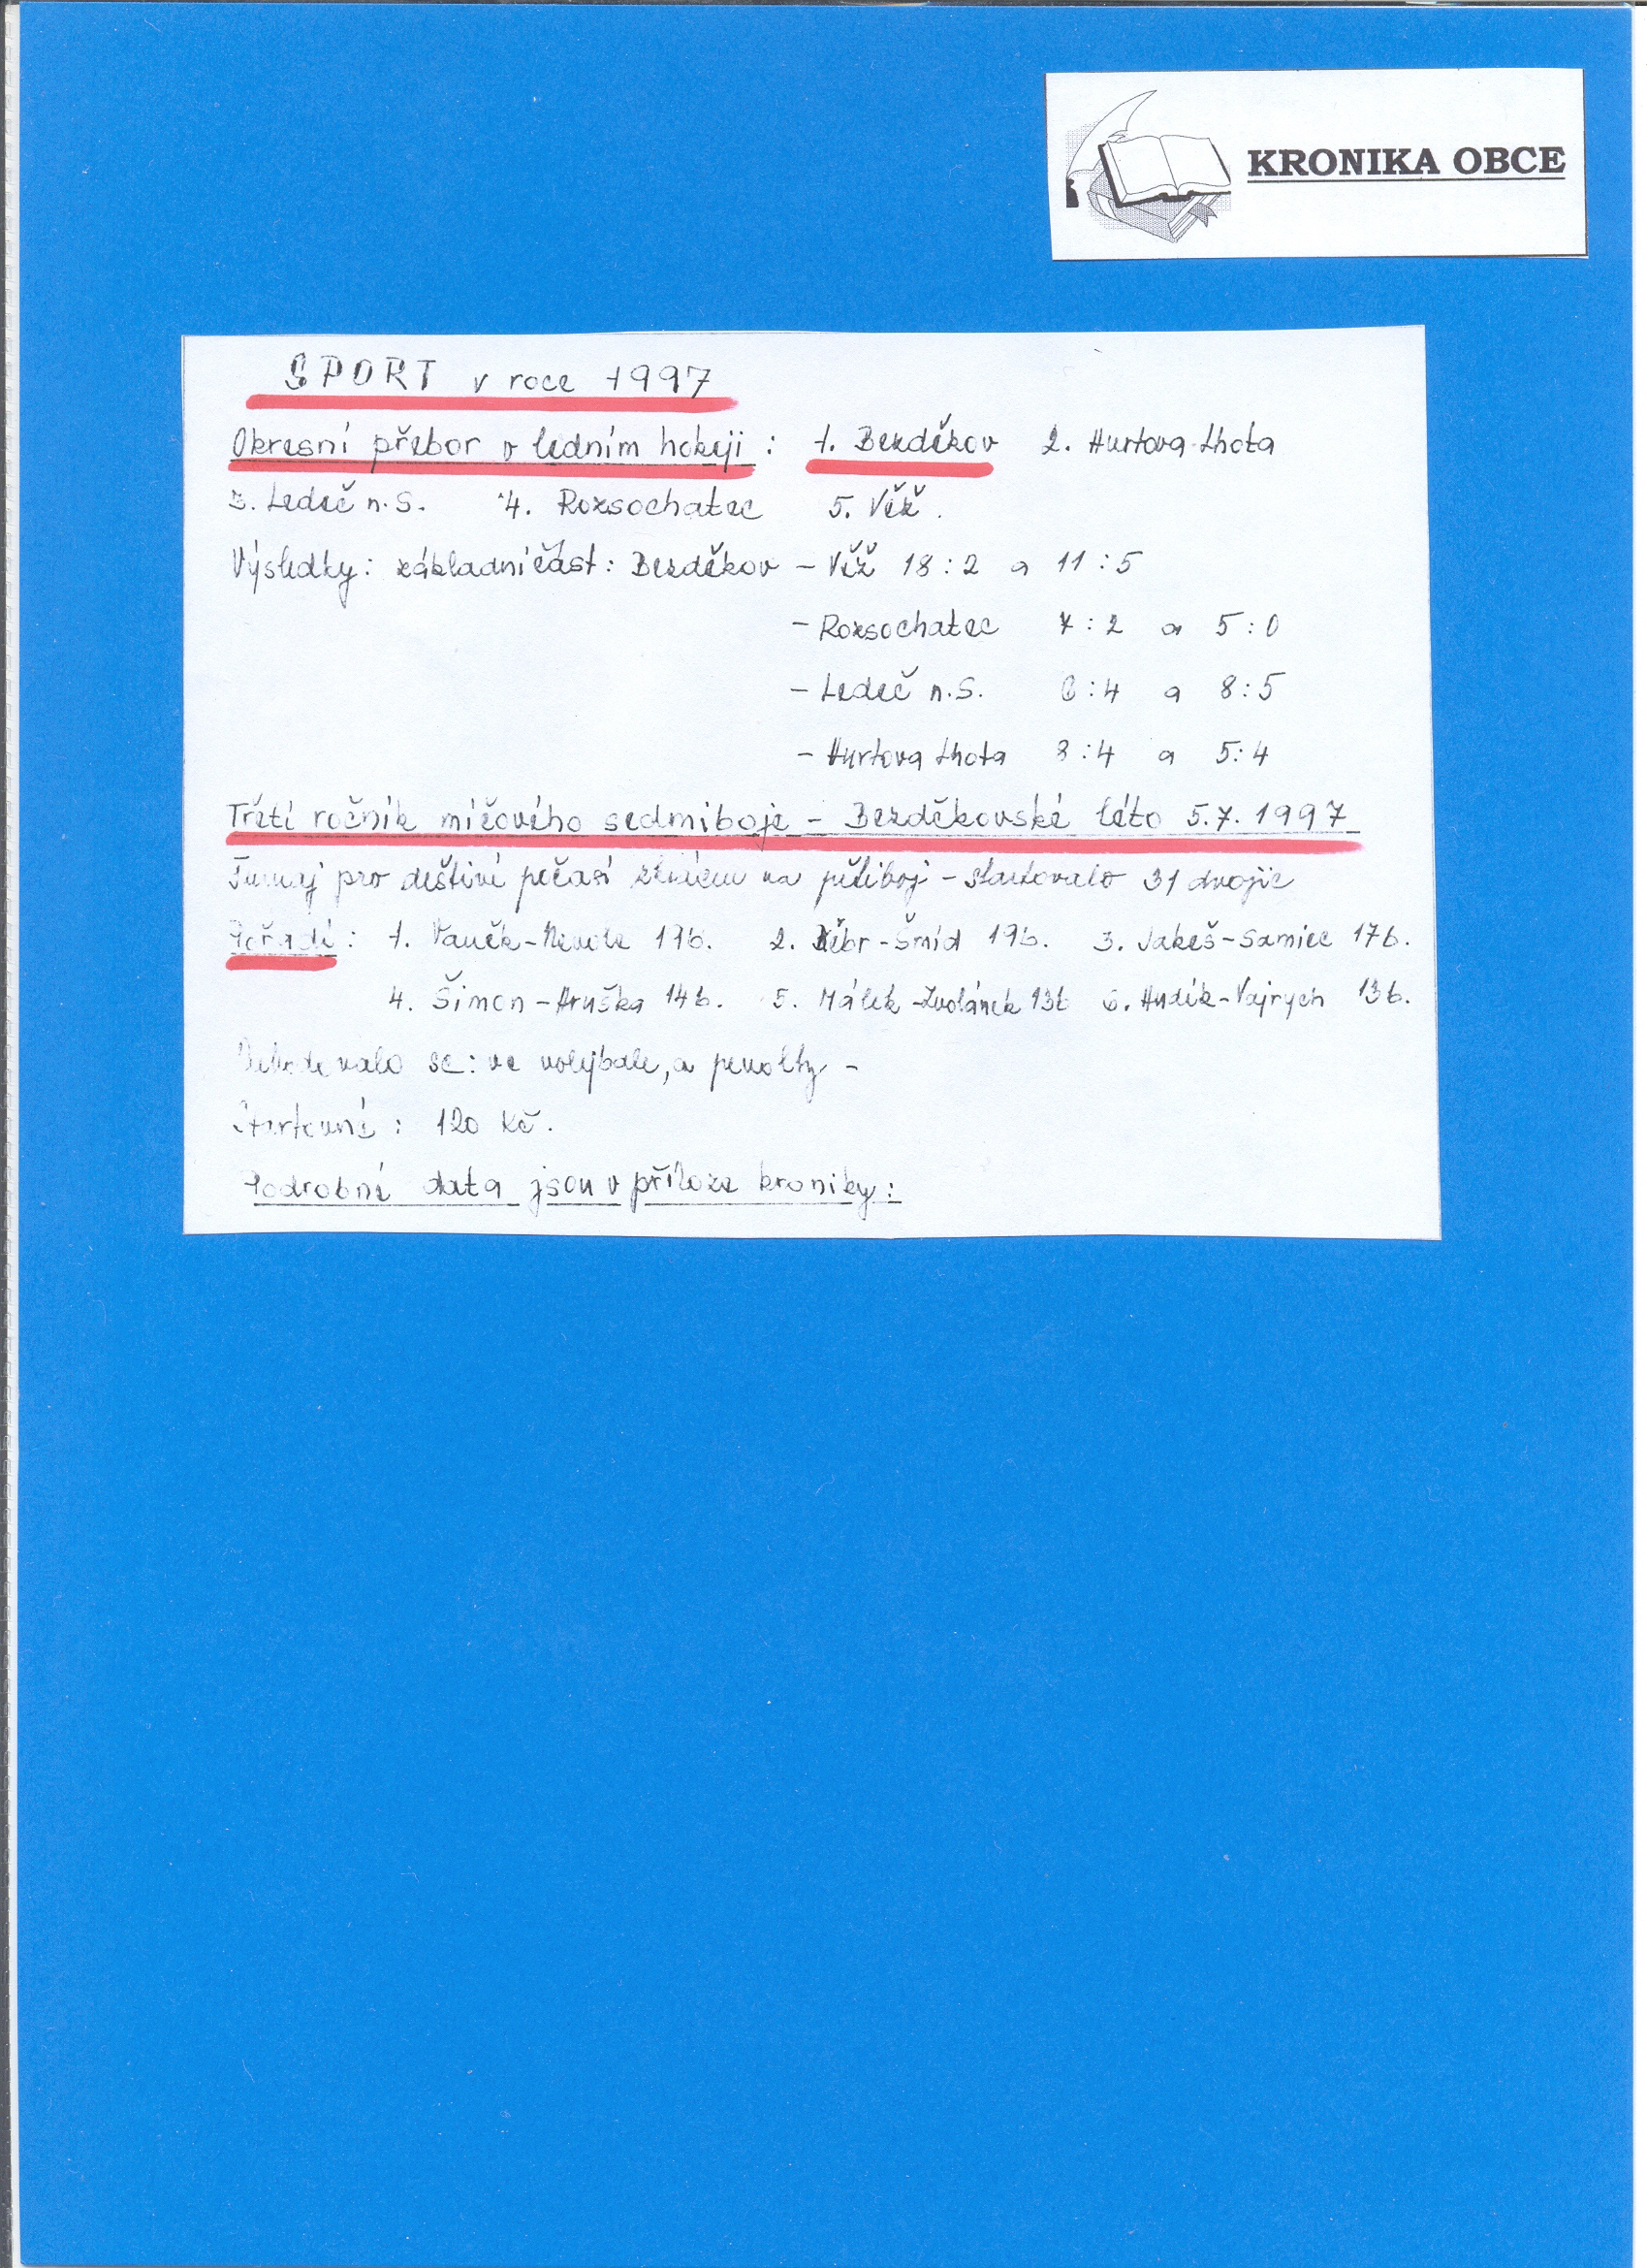 KRONIKA OBCE
SPORT v roce 1997
Okresní přebor v ledním hokeji : 1. Bezděkov 2. Hurtova Lhota
3. Ledeč n.S. 4. Rozsochatec 5. Věž.
Výsledky: základní část: Bezděkov – Věž 18:2 a 11:5
– Rozsochatec 7:2 a 5:0
– Ledeč n.S. 6:4 a 8:5
– Hurtova Lhota 8:4 a 5:4
Třetí ročník míčového sedmiboje – Bezděkovské léto 5.7.1997
Turnaj pro deštivé počasí zkrácen na pětiboj – startovalo 31 dvojic
Pořadí: 1. Vaněk-Nevole 19b. 2. -Šmíd 19b. 3. Jakeš-Samiec 17b.
4. Šimon-Hruška 14b. 5. Málek-Zvolánek 13b 6. Hudík-Vajrych 13b.
se: ve volejbale, a penalty –
Startovné: 120 Kč.
Podrobné data jsou v příloze kroniky: